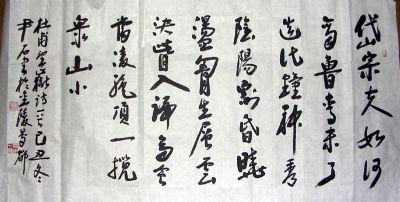 岱宗夫如何
齊魯青未了
造化鍾神秀
陰陽割昏曉
盪胸生層雲
決眥入歸鳥會
當凌絕頂一攬
眾山小
杜甫望嶽詩一首己丑冬
尹石書於金陵